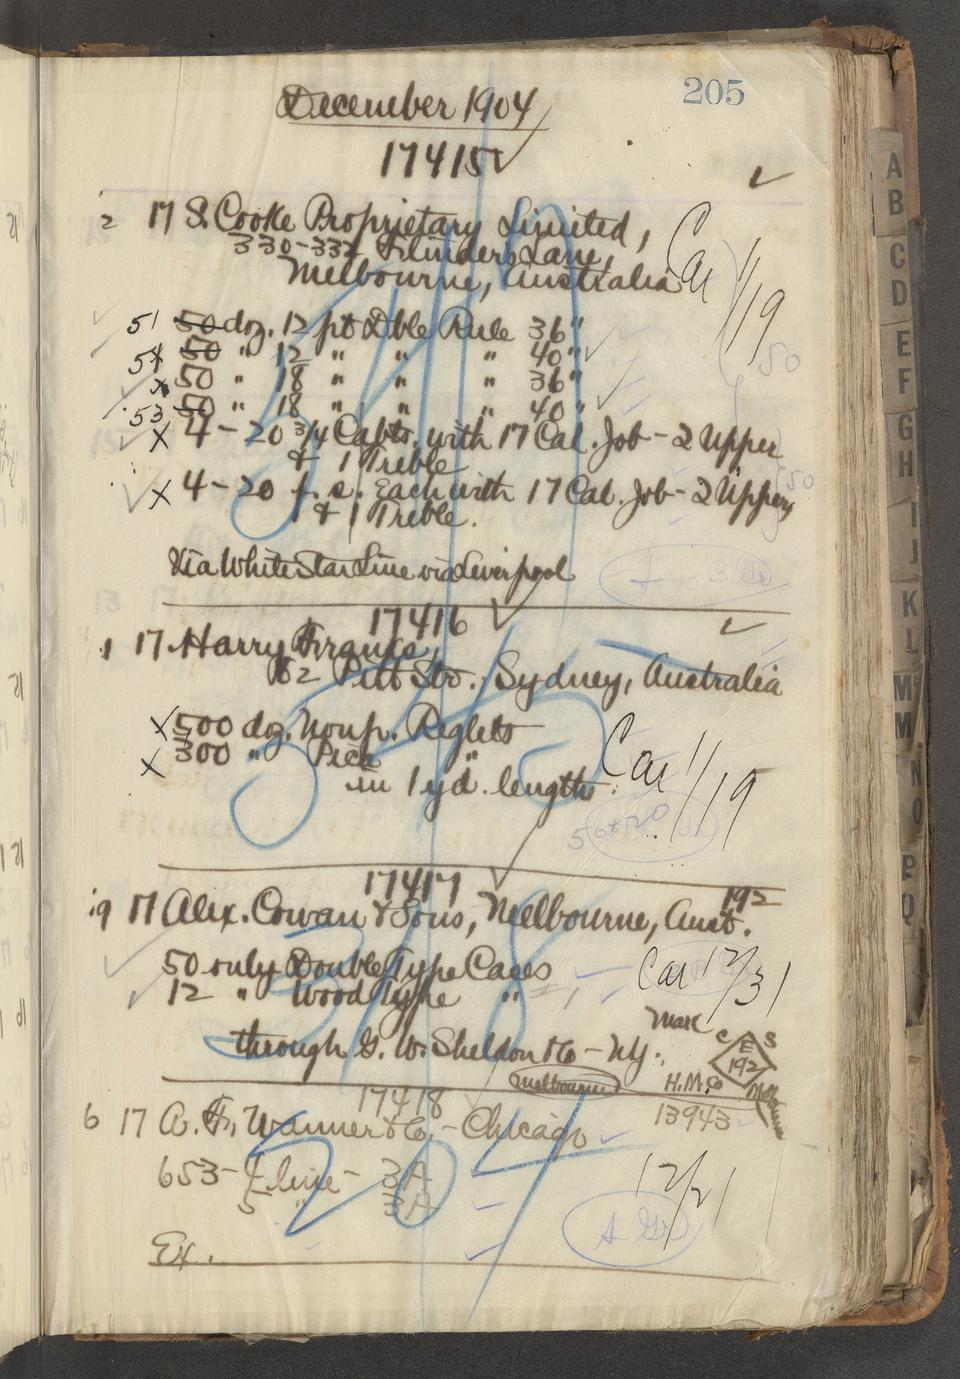 205
December 1904
17415
2 17 S. Cooke Proprietary Limited,
330-332 Flinders Lane,
Melbourne, Australia
Car 1/19
51 50 doz. 12 pt Dble Rule 36"
54 50 " 12 " " " 40"
x 50 " 18 " " " 36"
53 50 " 18 " " " 40"
50
x 4-20 3/4 Cabts. with 17 Cal. Job-2 Upper
& 1 Treble
x 4-20 f. s. Each with 17 Cal. Job-2 Upper
& 1 Treble.
50
Via White Star Line via Liverpool
17416
1 17 Harry Franks,
Pitt Str., Sydney, Australia
x 500 doz. Nonp. Reglets
x 300 " Pica "
in 1 yd. lengths.
Car 1/19
17417
19 17 Alex. Cowan & Sons, Melbourne, Aust.
192
50 only Double Type Cases
12 " Wood Type "
Car 12/31
through G. W. Sheldon & Co - NY.
Mark
C E S
192
Melbourne
Melbourne
H.M.Co
17418
13943
6 17 A. F. Wanner & Co. - Chicago
653 - 4 line - 3 A
5 " 3 A
12/21
Ex.
A
B
C
D
E
F
G
H
I
J
K
L
M
M
N
O
P
Q